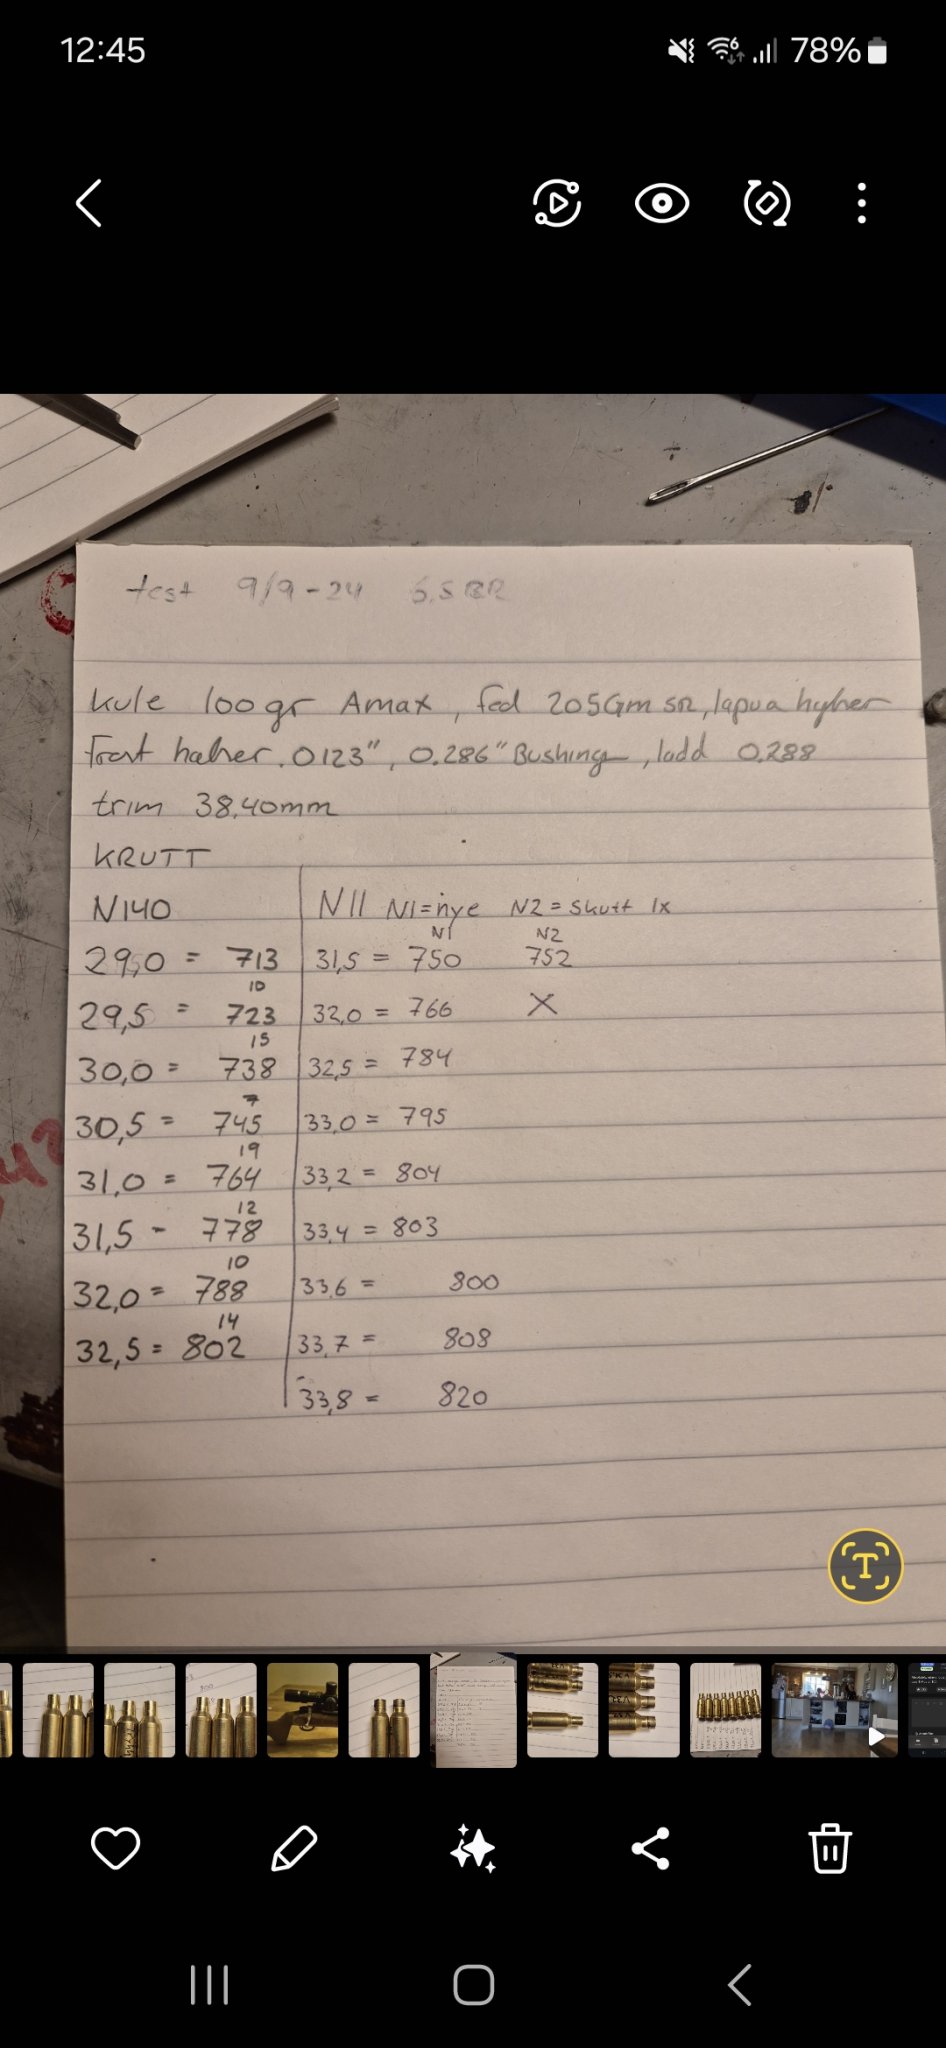 12:45
78%
test 9/9-24 6,5 BR
kule 100gr Amax, fed 205Gm SR, lapua hylser
Trert halser .0123", 0.286" Bushing, ladd 0.288
trim 38,40mm
KRUTT
N140 N11 N1=nye N2=skutt 1x
N1 N2
29,0 = 713 31,5 = 750 752
10
29,5 = 723 32,0 = 766 X
15
30,0 = 738 32,5 = 784
7
30,5 = 745 33,0 = 795
19
31,0 = 764 33,2 = 804
12
31,5 - 778 33,4 = 803
10
32,0 = 788 33,6 = 800
14
32,5 = 802 33,7 = 808
33,8 = 820
T